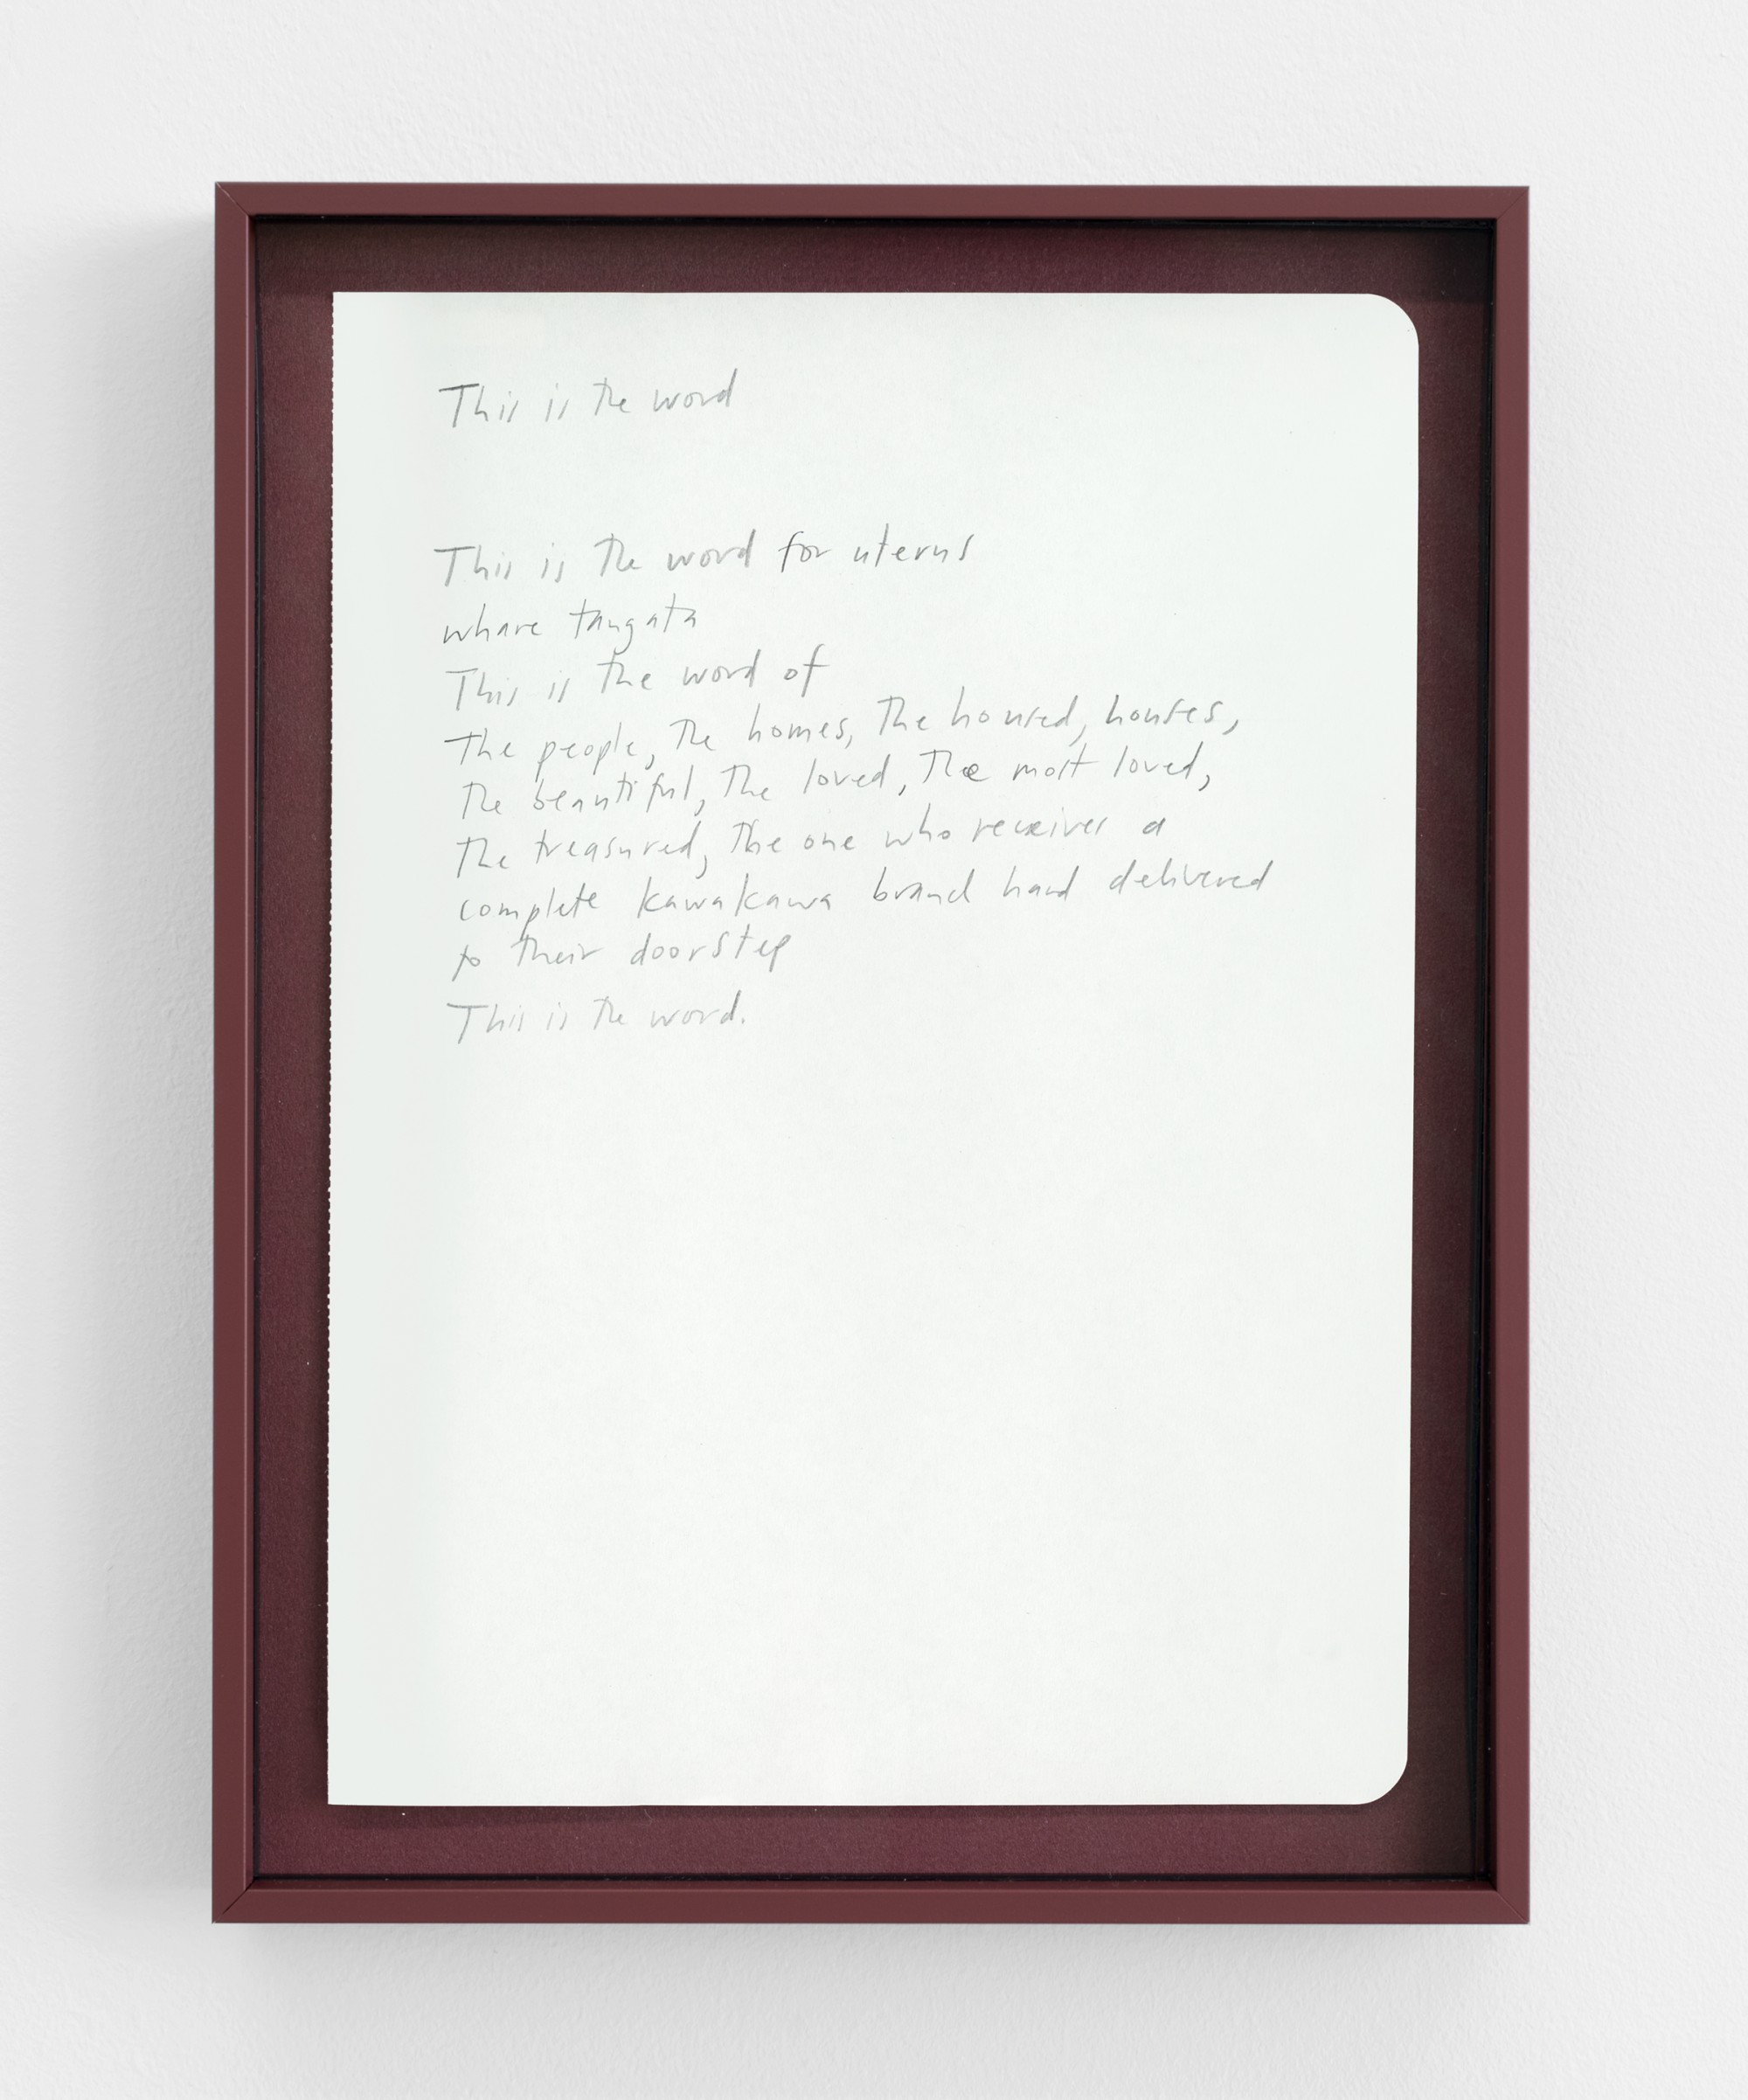 This is the word
This is the word for uterus
whare tangata
This is the word of
The people, The homes, The housed, houses,
The beautiful, The loved, The most loved,
The treasured, The one who receives a
complete kawakawa brand hand delivered
to their doorstep
This is the word.